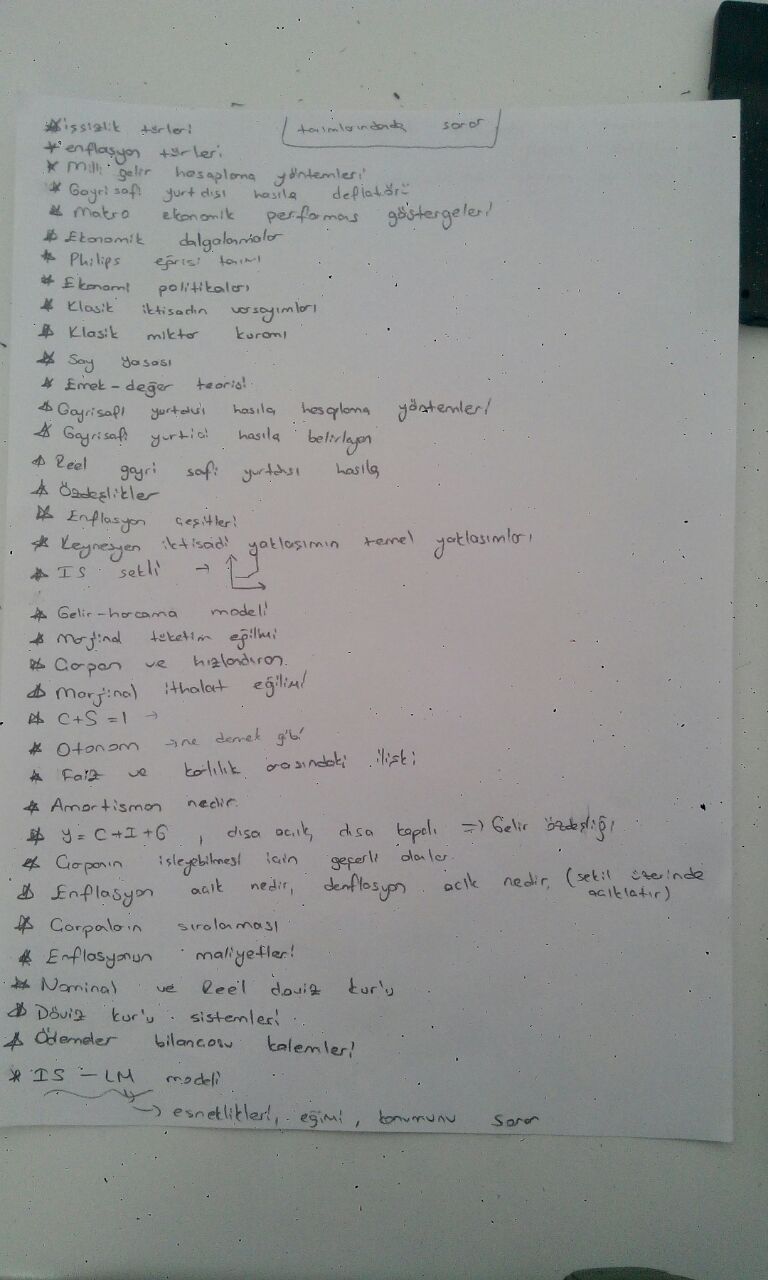 * işsizlik türleri
tanımlarındanda sorar
* enflasyon türleri
* Milli gelir hesaplama yöntemleri
* Gayri safi yurtdısı hasıla deflatörü
* Makro ekonomik performas göstergeleri
* Ekonomik dalgalanmalar
* Philips eğrisi tanımı
* Ekonomi politikaları
* Klasik iktisadın varsayımları
* Klasik miktar kuramı
* Say yasası
* Emek-değer teorisi
* Gayrisafi yurtdısı hasıla hesaplama yöntemleri
* Gayrisafi yurtici hasıla belirleyen
* Reel gayri safi yurtdısı hasıla
* Özdeşlikler
* Enflasyon çeşitleri
* Keynesyen iktisadi yaklaşımın temel yaklasımları
* IS sekli →
* Gelir-harcama modeli
* Marjinal tüketim eğilimi
* Çarpan ve hızlandıran
* Marjinal ithalat eğilimi
* C+S=1 →
* Otonom → ne demek gibi
* Faiz ve karlılık arasındaki ilişki
* Amortisman nedir.
* Y=C+I+G, dısa acık, dısa kapalı => Gelir özdeşliği
* Çarpanın işleyebilmesi için geçerli olanlar
* Enflasyon acık nedir, denflasyon acık nedir, (sekil üzerinde
acıklatır)
* Çarpanların sıralaması
* Enflasyonun maliyetleri
* Nominal ve Reel döviz kur'u
* Döviz kur'u sistemleri
* Ödemeler bilancosu kalemleri
* IS - LM modeli
→ esneklikleri, eğimi, konumunu sorar